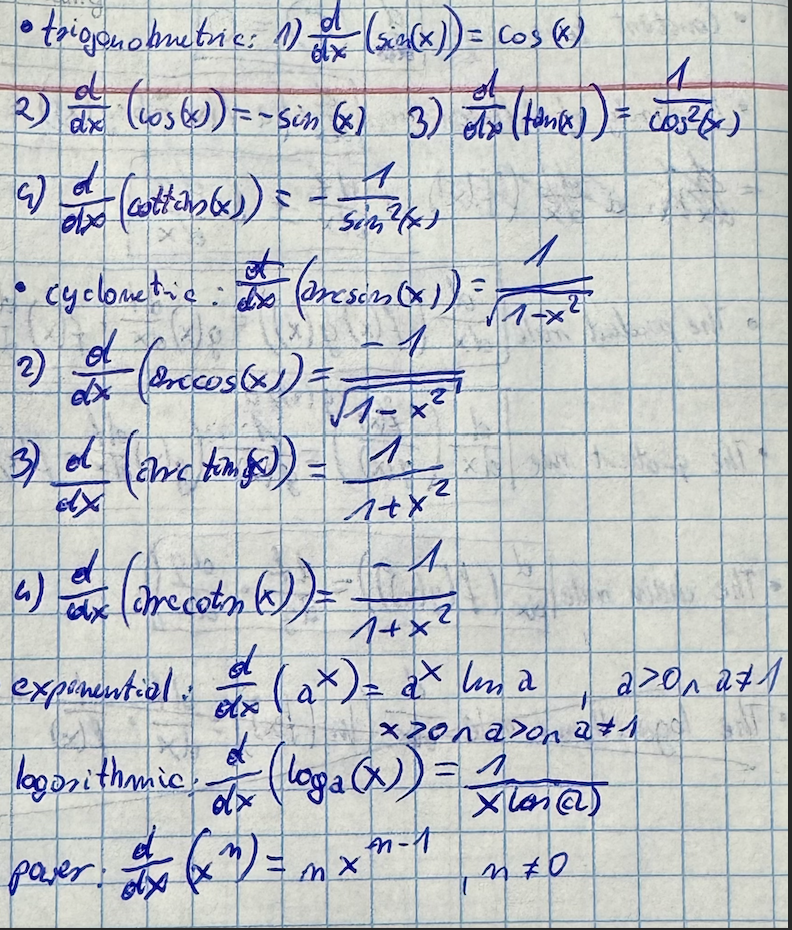 • trigonometric: 1) d/dx (sin(x)) = cos(x)
2) d/dx (cos(x)) = -sin(x) 3) d/dx (tan(x)) = 1/cos²(x)
4) d/dx (cottan(x)) = - 1/sin²(x)
• cyclometric: d/dx (arcsin(x)) = 1/√(1-x²)
2) d/dx (arccos(x)) = -1/√(1-x²)
3) d/dx (arctan(x)) = 1/(1+x²)
4) d/dx (arccotn(x)) = -1/(1+x²)
exponential: d/dx (aˣ) = aˣ ln a , a>0 ∧ a≠1
x>0 ∧ a>0 ∧ a≠1
logorithmic: d/dx (logₐ(x)) = 1/(x ln(a))
power: d/dx (xⁿ) = n xⁿ⁻¹ , n≠0